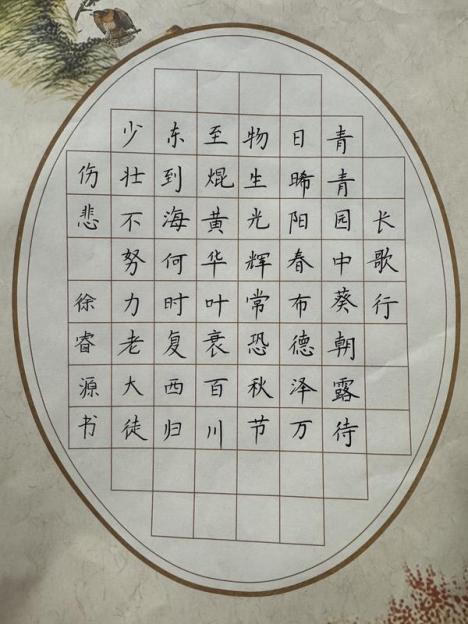 长歌行
青青园中葵朝露待
日晞阳春布德泽万
物生光辉常恐秋节
至焜黄华叶衰百川
东到海何时复西归
少壮不努力老大徒
伤悲 徐睿源书